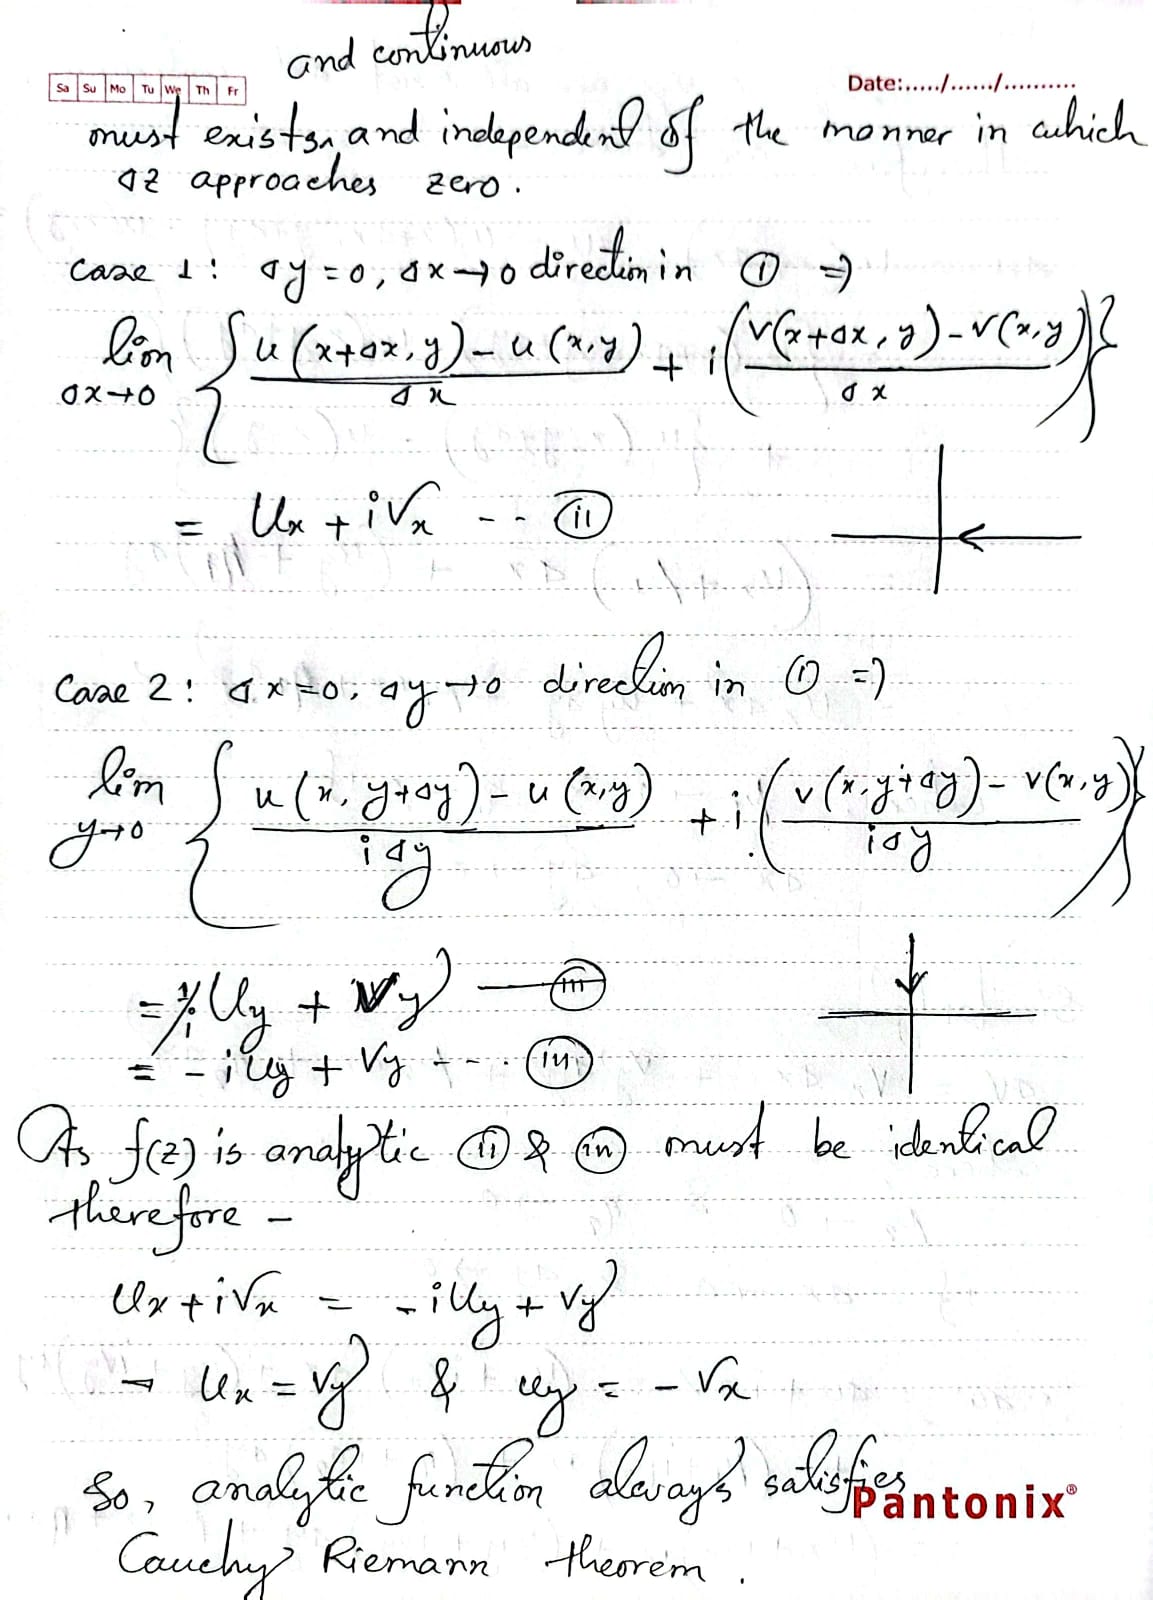 and continuous
Sa Su Mo Tu We Th Fr
Date:...../....../..........
must exists, and independent of the manner in which
Δz approaches zero.
Case 1: Δy = 0, Δx → 0 direction in ① ⇒
lim Δx→0 { (u(x+Δx, y) - u(x,y))/Δx + i((v(x+Δx, y) - v(x,y))/Δx) }
= Ux + iVx - - ⓘⓘ
Case 2: Δx = 0, Δy → 0 direction in ① ⇒
lim y→0 { (u(x, y+Δy) - u(x,y))/iΔy + i((v(x, y+Δy) - v(x,y))/iΔy) }
= 1/i Uy + Vy — (iii)
= - iUy + Vy - - - (iii)
As f(z) is analytic (ii) & (iii) must be identical
therefore -
Ux + iVx = - iUy + Vy
→ Ux = Vy & Uy = - Vx
So, analytic function always satisfies
Pantonix®
Cauchy Riemann theorem.